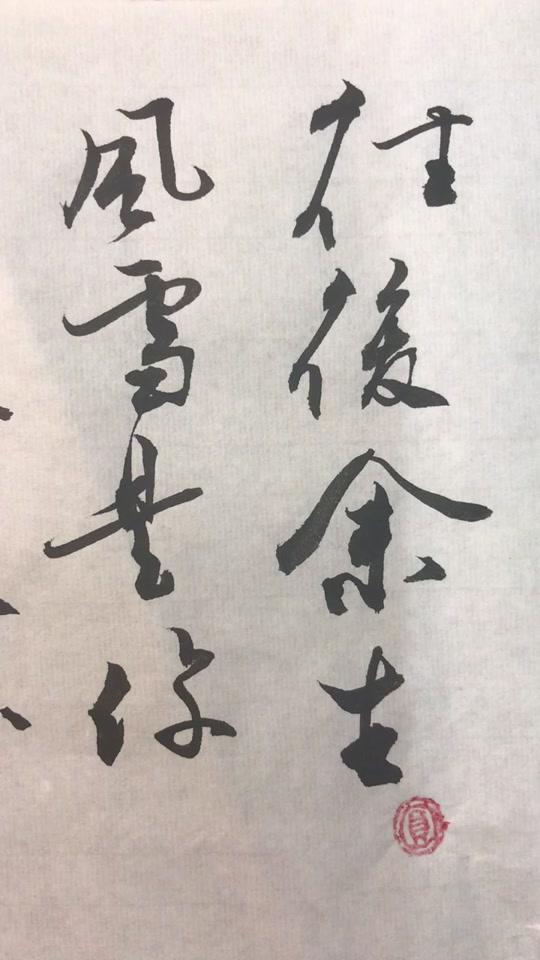 往後余生
風雪是你